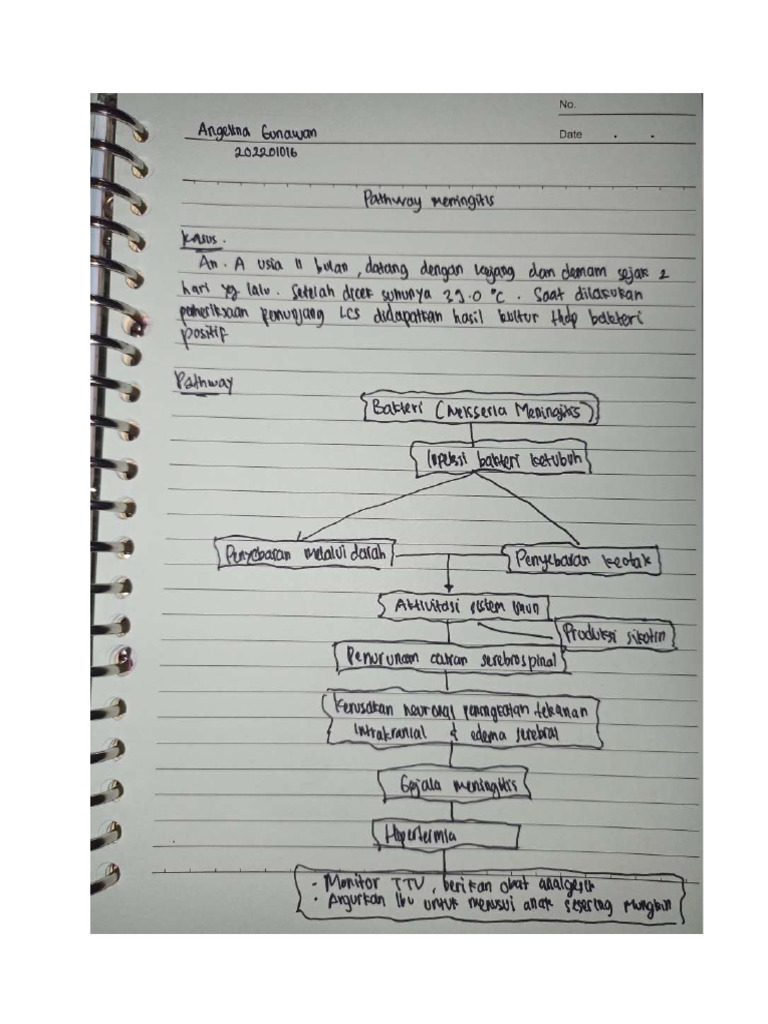 No.
Date
Angelina Gunawan
202201016
Pathway meningitis
Kasus.
An. A usia 11 bulan, datang dengan kejang dan demam sejak 2
hari yg lalu. Setelah dicek suhunya 39.0 °C. Saat dilakukan
pemeriksaan penunjang LCS didapatkan hasil kultur thdp bakteri
positif
Pathway
Bakteri (Neisseria Meningitis)
Infeksi bakteri ketubuh
Penyebaran melalui darah
Penyebaran keotak
Aktivitasi sistem imun
Produksi sikotin
Penurunan cairan serebrospinal
Kerusakan neuronal peningkatan tekanan
intrakranial & edema serebral
Gejala meningitis
Hipertermia
- Monitor TTV, berikan obat analgesik
- Anjurkan ibu untuk menyusui anak sesering mungkin